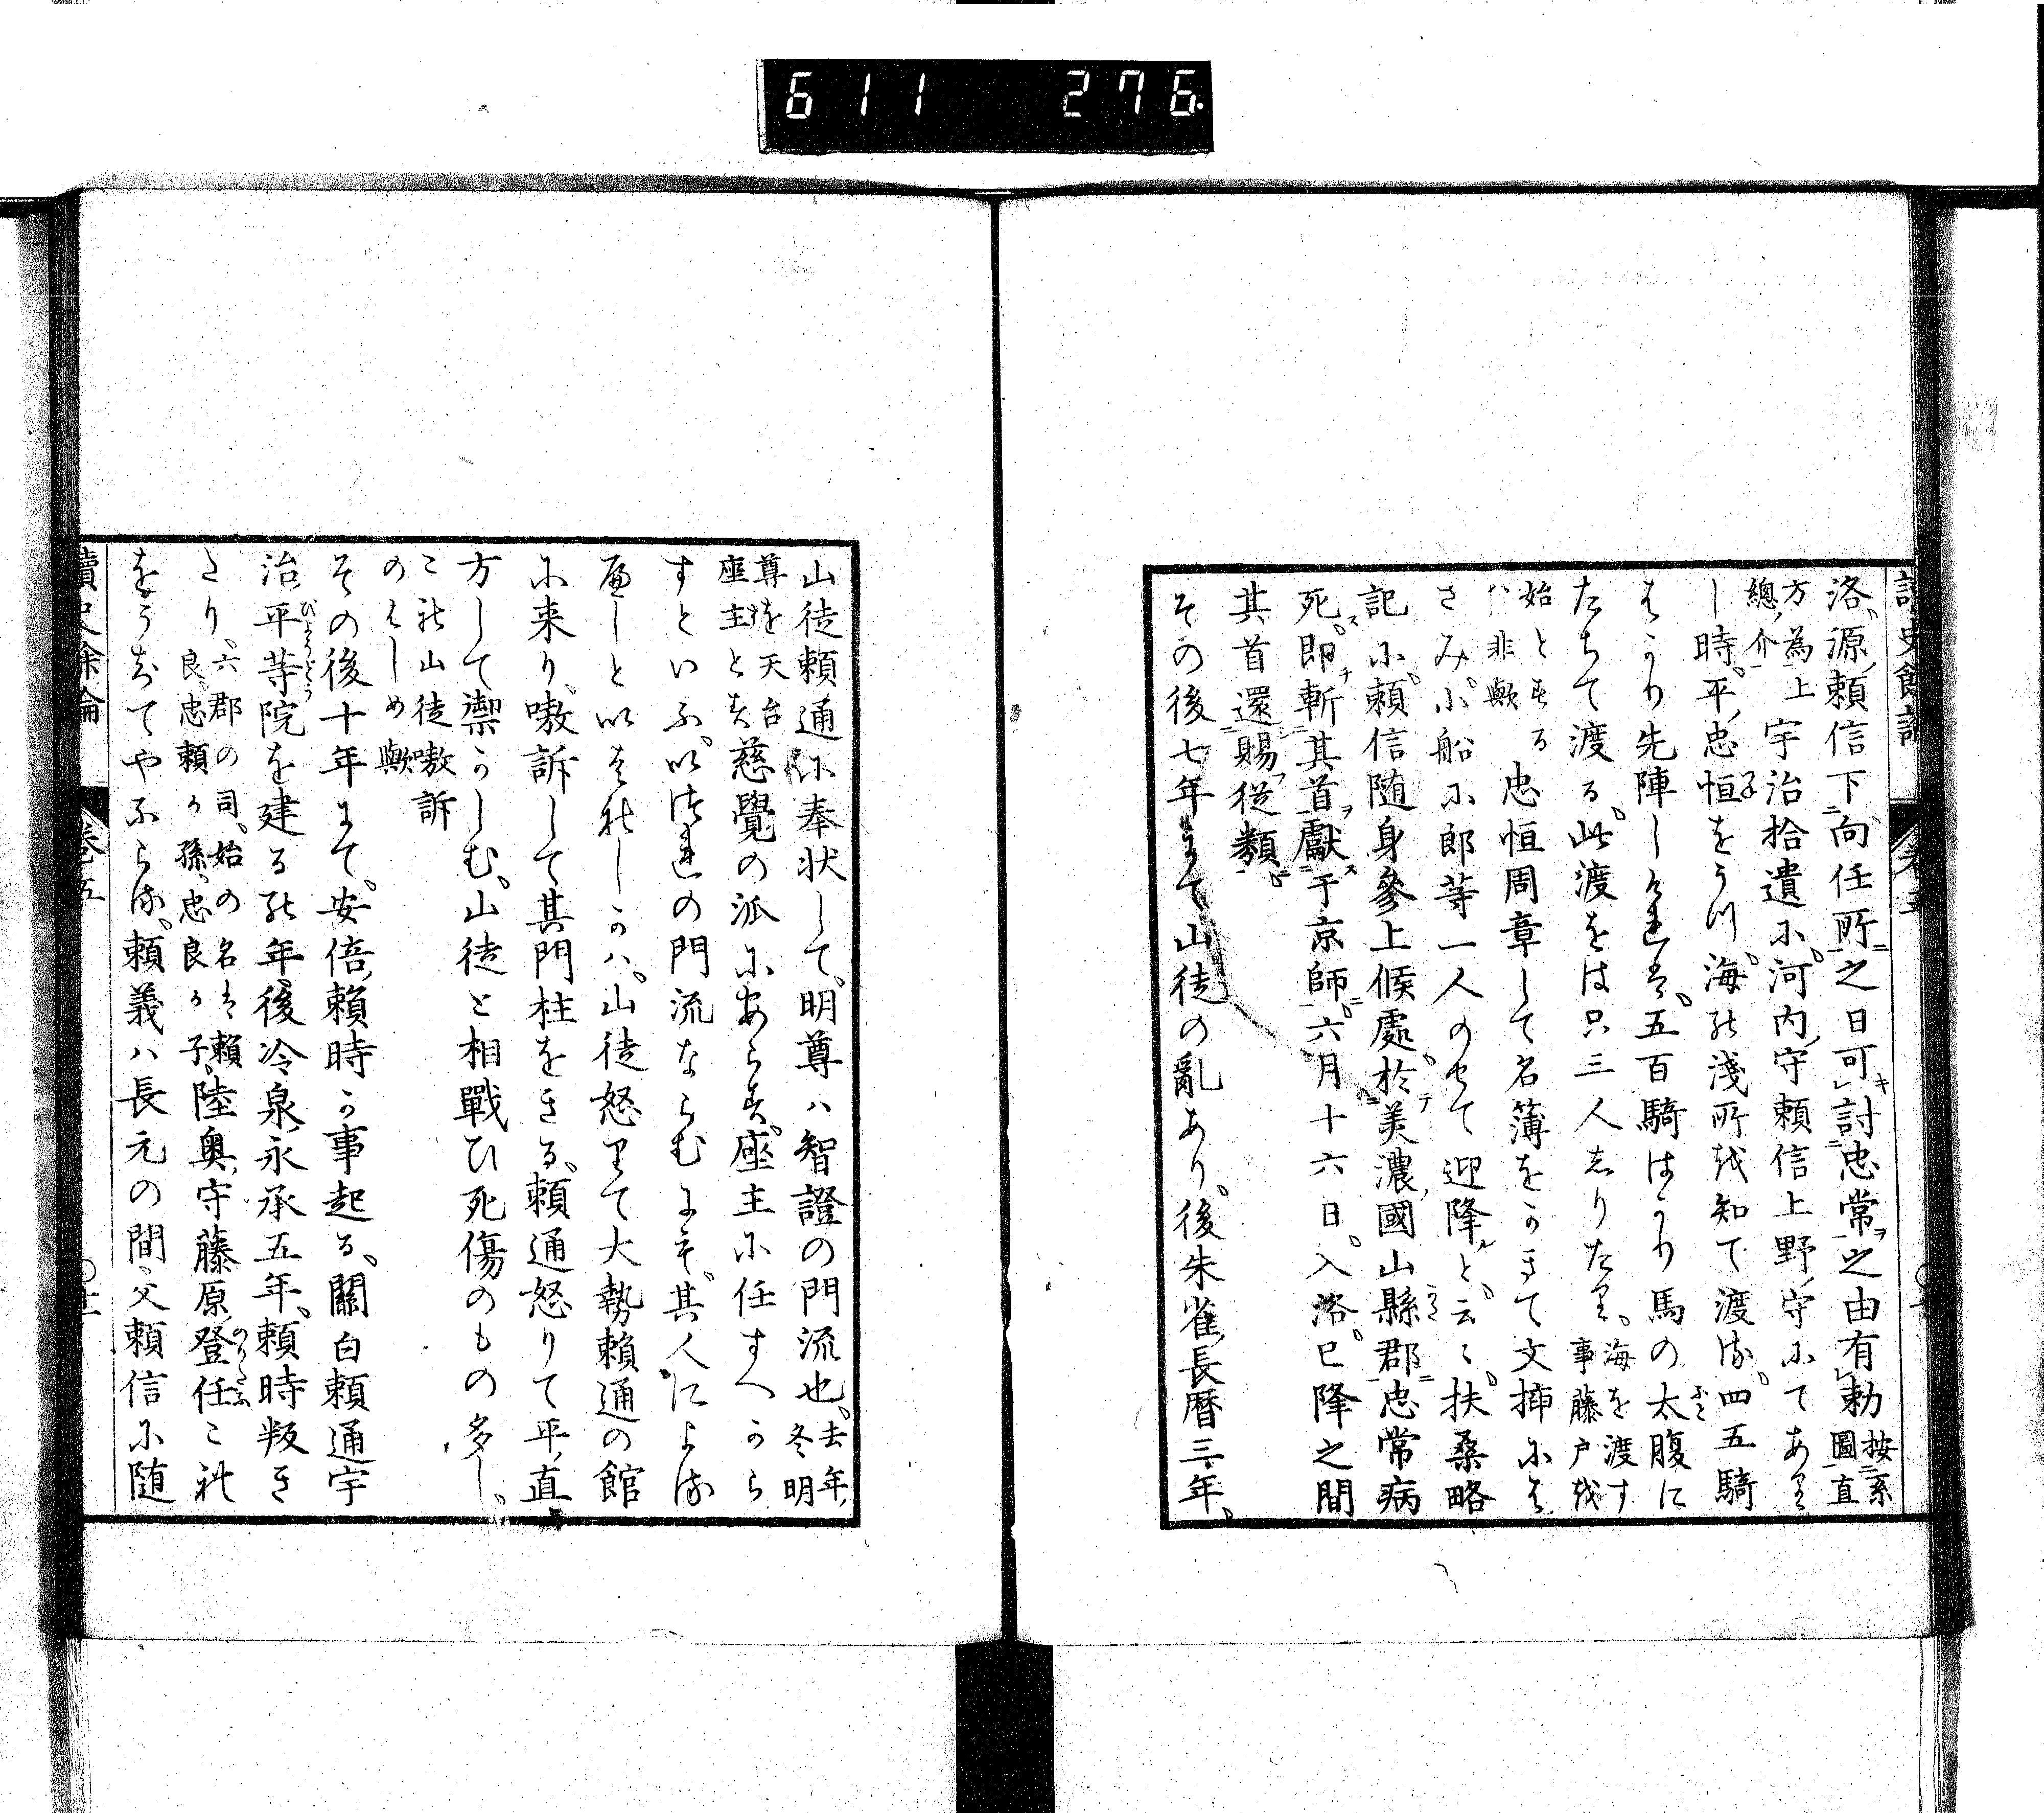 6 1 1 2 7 6.
洛、源頼信下向任所之日可討忠常之由有勅按系圖直
方為上總介宇治拾遺ニ河内守頼信上野守にてあり
し時、平忠恒をうつ海の淺所を知て渡る、四五騎
はかり先陣しけれは、五百騎はかり馬の太腹に
たちて渡る、此渡をは只三人しりたり、海を渡す事藤戸を
始とするハ非歟忠恒周章して名薄をかきて文挿には
さみ、小船に郎等一人のせて迎降と云々、扶桑略
記に頼信随身參上候處、於美濃國山縣郡忠常病
死、即斬其首獻于京師、六月十六日、入洛、已降之間
其首還賜從類、
その後七年まて山徒の亂あり、後朱雀、長暦三年、
山徒頼通に奉状して、明尊ハ智證の門流也、去年冬明
尊を天台座主とす慈覺の派にあらす、座主に任すへから
すといふ、以はれの門流ならむよそ、其人による
へしと以はれしかハ、山徒怒りて大勢頼通の館
に来り、嗷訴して其門柱をきる、頼通怒りて平直
方して禦かしむ、山徒と相戰ひ死傷のもの多し、
これ山徒嗷訴のはしめ歟
その後十年まて、安倍頼時か事起る、關白頼通宇
治平等院を建る此年、後冷泉、永承五年、頼時叛き
たり、六郡の司、始の名は頼良、忠頼か孫、忠良か子、陸奥守藤原登任これ
をうちてやふらる、頼義ハ長元の間、父頼信に随
讀史餘論 巻五